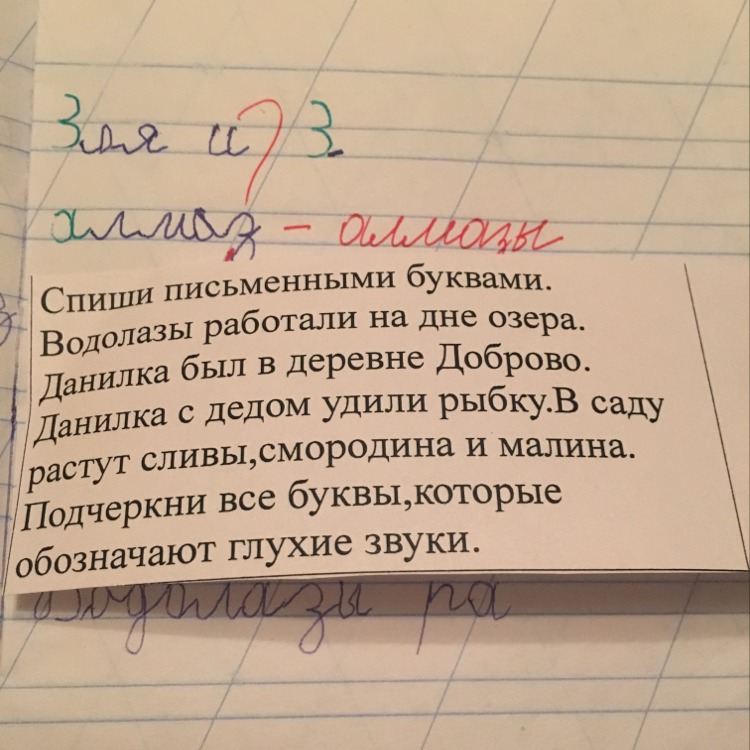 Зля и З.
алмаз - алмазы
Спиши письменными буквами.
Водолазы работали на дне озера.
Данилка был в деревне Доброво.
Данилка с дедом удили рыбку.В саду
растут сливы,смородина и малина.
Подчеркни все буквы,которые
обозначают глухие звуки.
Водолазы ра